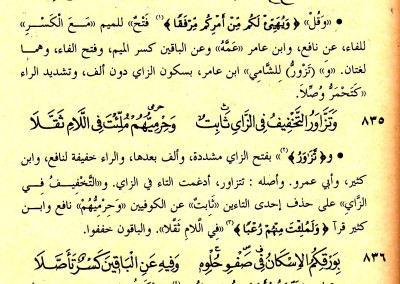 • «وَقُل» ﴿ وَيُهَيِّئْ لَكُم مِّنْ أَمْرِكُم مِّرْفَقًا ﴾(١) فَتْحٌ» للميم «مَـعَ الْكَسْرِ»
للفاء، عن نافع، وابن عامر «عَمَّهُ» وعن الباقين كسر الميم، وفتح الفاء، وهما
لغتان. «و» (تَزْوَرُّ لِلشَّامِي) ابن عامر، بسكون الزاي دون ألف، وتشديد الراء
«كَتَحْمَرُّ وُصِّلَا».
٨٣٥ وَتَزَّاوَرُ التَّخْفِيفُ فِى الزَّايِ ثَابِتٌ وَحِرْمِيُّهُمْ مُلِّئْتَ فِى اللَّامِ ثَقَّلَا
• و﴿ تَزَّوَرُ ﴾(٢) بفتح الزاي مشددة، وألف بعدها، والراء خفيفة لنافع، وابن
كثير، وأبي عمرو. وأصله : تتزاور، أدغمت التاء في الزاي. و«التَّخْفِيـفُ فـي
الزَّاي» على حذف إحدى التاءين «ثَابتٌ» عن الكوفيين «وَحِرْمِيُّهُمْ» نافع وابـن
كثير قرآ ﴿ وَلَمُلِّئْتَ مِنْهُمْ رُعْبًا ﴾(٣) «فِي اللَّامِ ثَقَّلَا». والباقون خففوا.
٨٣٦ بِوَرْقِكُمُ الإِسْكَانُ فِى صَفْوِ حُلْوِهِ وَفِيهِ عَنِ الْبَاقِينَ كَسْرٌ تَأَصَّلَا